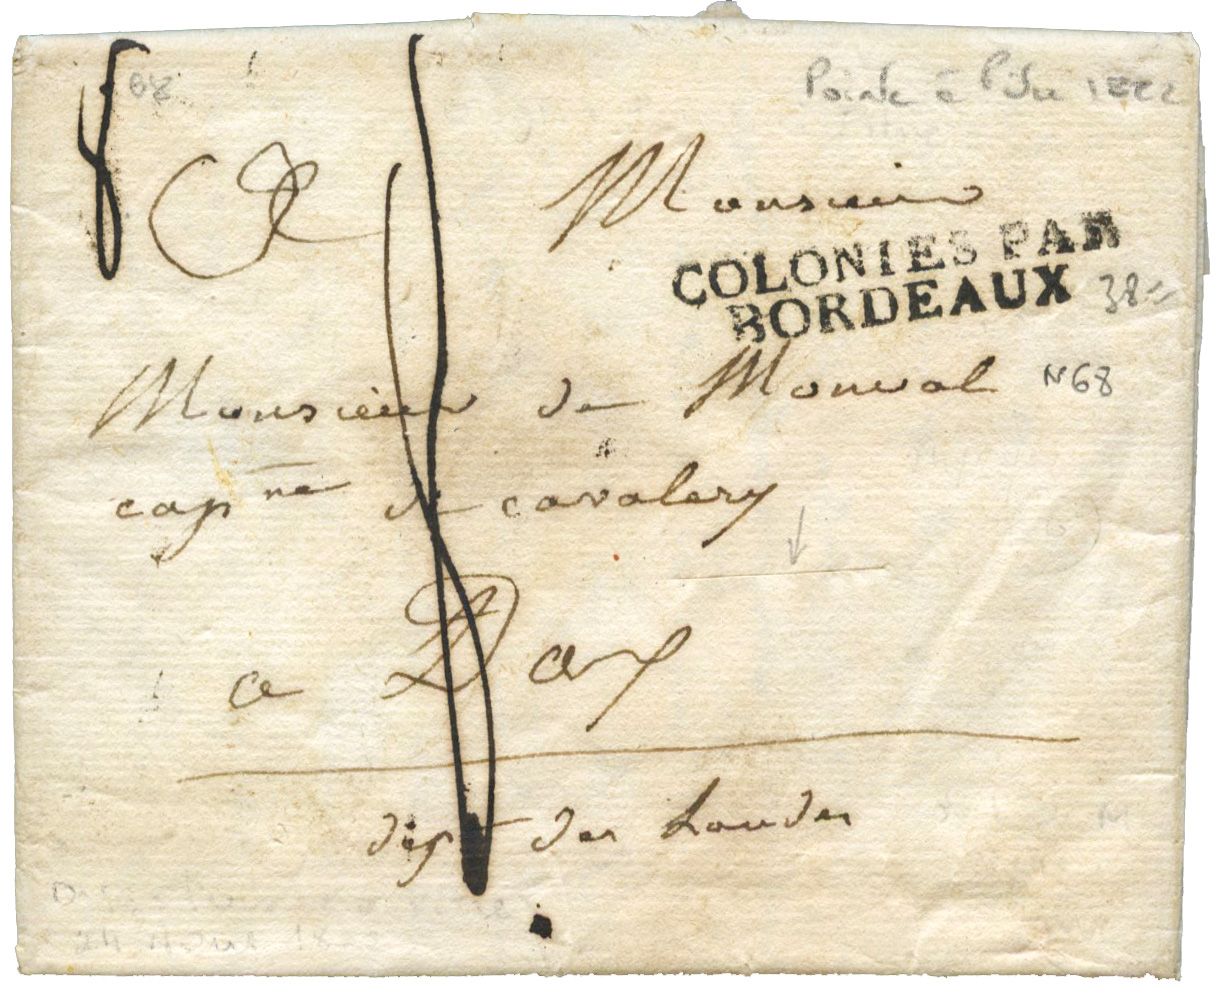 Pointe à Pitre 1822
A Monsieur
COLONIES PAR
BORDEAUX 38=
Monsieur de Monval N68
capne de cavalery
a Dax
dept des Landes